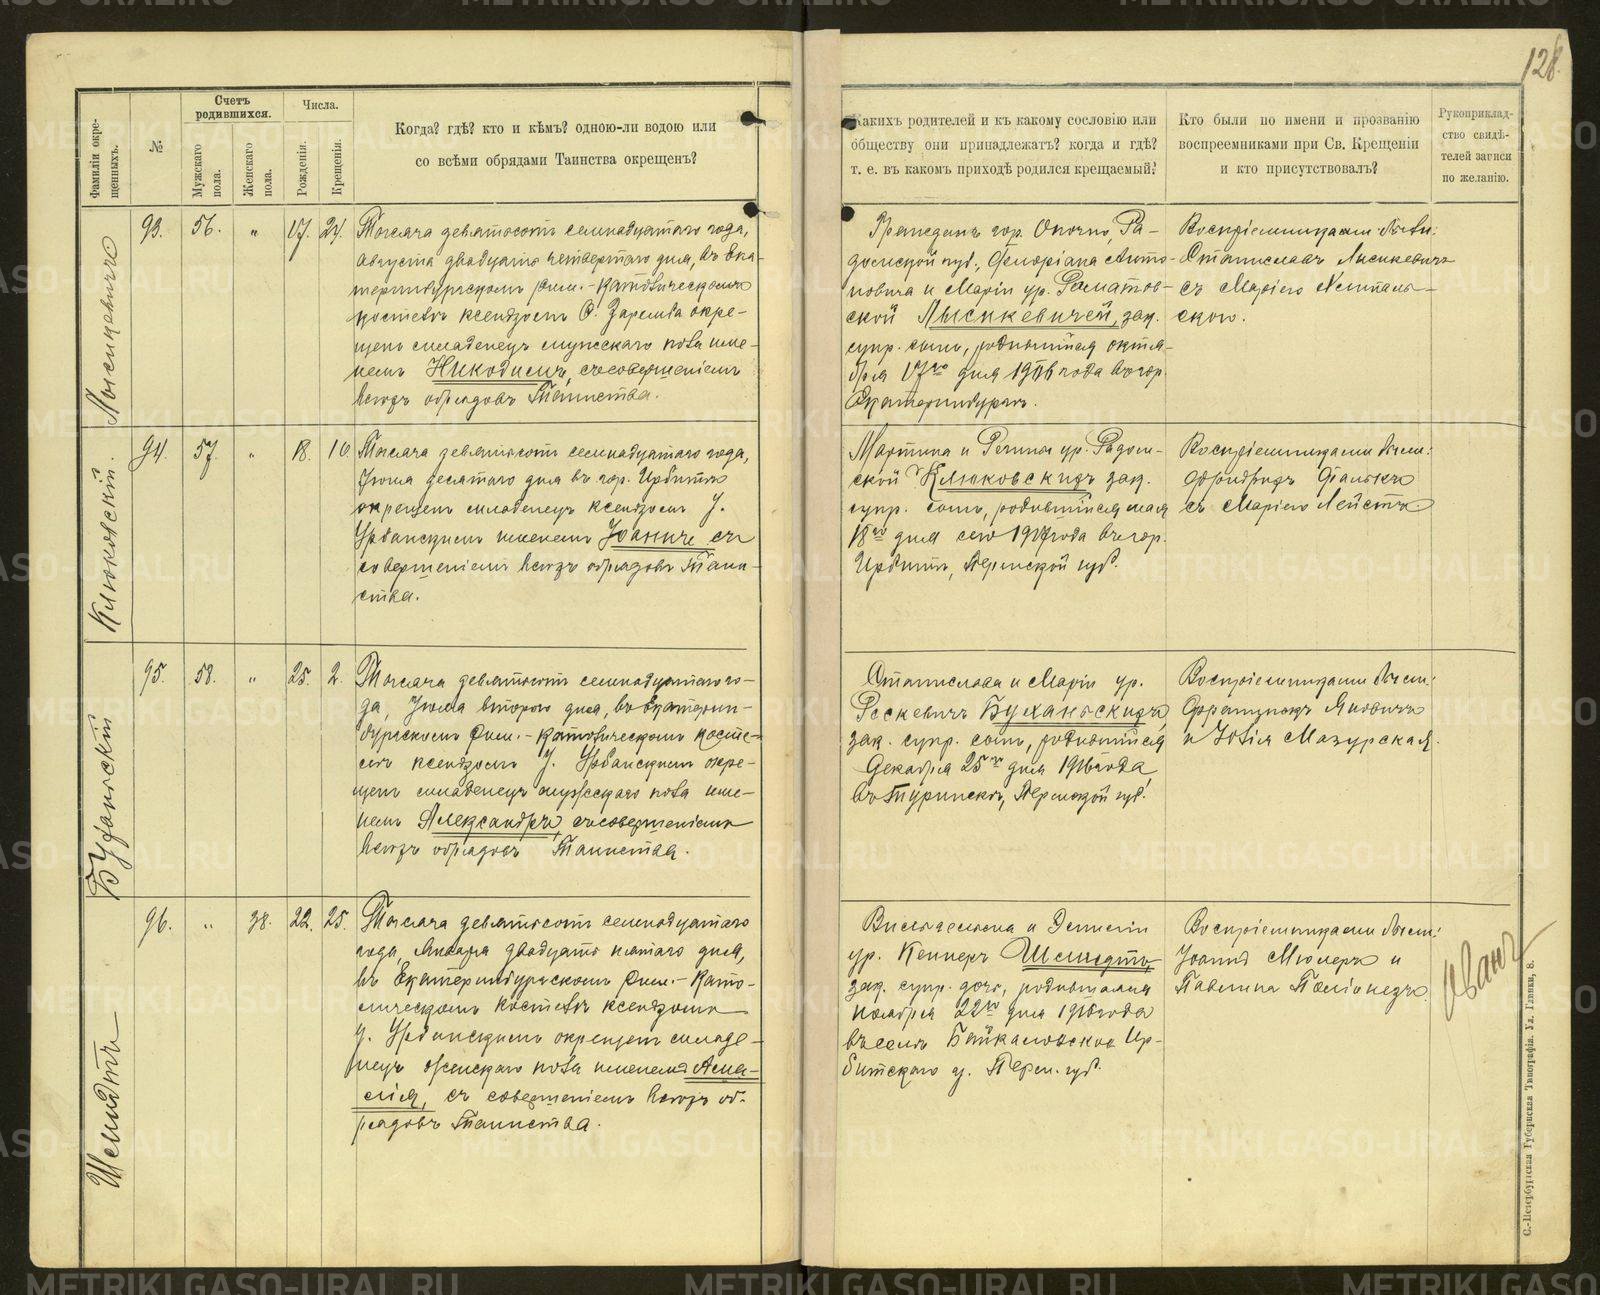 128.
Фамиліи окре-
щенныхъ.
№
Счетъ
родившихся.
Мужскаго
пола.
Женскаго
пола.
Числа.
Рожденія.
Крещенія.
Когда? гдѣ? кто и кѣмъ? одною-ли водою или
со всѣми обрядами Таинства окрещенъ?
Какихъ родителей и къ какому сословію или
обществу они принадлежатъ? когда и гдѣ?
т. е. въ какомъ приходѣ родился крещаемый?
Кто были по имени и прозванію
воспреемниками при Св. Крещеніи
и кто присутствовалъ?
Рукоприклад-
ство свидѣ-
телей записи
по желанію.
93. 56. " 17. 24.
Тысяча девятьсотъ семнадцатаго года,
Августа двадцать четвертаго дня, въ Ека-
теринбургскомъ Рим.-Католическомъ
костелѣ ксендзомъ О. Заремба окре-
щенъ младенецъ мужескаго пола име-
немъ Никодимъ, съ совершеніемъ
всѣхъ обрядовъ Таинства.
Граждан гор. Опочно, Ра-
домской губ., Флоріана Анто-
новича и Маріи ур.
ской зак.
супр. сынъ, родившійся октя-
бря 17го дня 1916 года въ гор.
Екатеринбургѣ.
Воспріемниками были:
Станиславъ Лисикевичъ
съ Маріею
скою.
Клюковскій.
94. 57. " 18. 10.
Тысяча девятьсотъ семнадцатаго года,
Іюня десятаго дня въ гор. Ирбитѣ
окрещенъ младенецъ ксендзомъ І.
Урбанскимъ именемъ Іоаннъ съ
совершеніемъ всѣхъ обрядовъ Таин-
ства.
Мартина и Регины ур. Радом-
ской Клюковскихъ зак.
супр. сынъ, родившійся мая
18го дня сего 1917 года въ гор.
Ирбитѣ, Пермской губ.
Воспріемниками были:
Фридрихъ
съ Маріею Лейстъ
Буханскій
95. 58. " 25. 2.
Тысяча девятьсотъ семнадцатаго го-
да, Іюля второго дня, въ Екатерин-
бургскомъ Рим.-Католическомъ косте-
лѣ ксендзомъ І. Урбанскимъ окре-
щенъ младенецъ мужескаго пола име-
немъ Александръ, съ совершеніемъ
всѣхъ обрядовъ Таинства.
Станислава и Маріи ур.
Роскевичъ Буханьскихъ,
зак. супр. сынъ, родившійся
Декабря 25го дня 1916 года
въ Туринскѣ, Пермской губ.
Воспріемниками были:
Францискъ Яновичъ
и Юлія Мазурская.
Шмидтъ
96. " 38. 22. 25.
Тысяча девятьсотъ семнадцатаго
года, Января двадцать пятаго дня,
въ Екатеринбургскомъ Рим.-Като-
лическомъ костелѣ ксендзомъ
І. Урбанскимъ окрещенъ младе-
нецъ женскаго пола именемъ Ама-
лія, съ совершеніемъ всѣхъ об-
рядовъ Таинства.
Вильгельма и Эмиліи
ур. Кеннеръ Шмидтъ,
зак. супр. дочь, родившаяся
ноября 22го дня 1916 года
въ селѣ Байкаловское Ир-
битскаго у. Перм. губ.
Воспріемниками были:
Іоаннъ Мюлеръ и
Павлина
Иванъ
С.-Петербургская Губернская Типографія. Ул. Глинки, 8.
METRIKI.GASO-URAL.RU